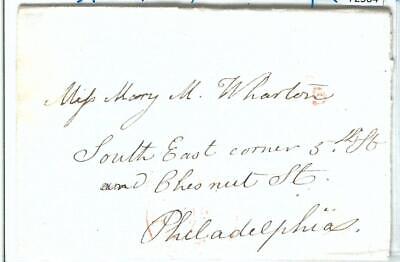 Miss Mary M. Wharton
South East corner 5.th St
and Chesnut St.
Philadelphia.